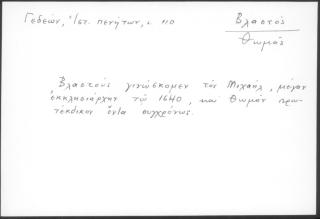 Γεδεών, 1/52. πενήτων, σ. 110
Βλαστός
Θωμᾶς
Βλαστοὺς γινώσκομεν τὸν Μιχαήλ, μέγαν
ἐκκλησιάρχην τῷ 1640, καὶ Θωμᾶν πρω-
τέκδικον ὄντα συγχρόνως.